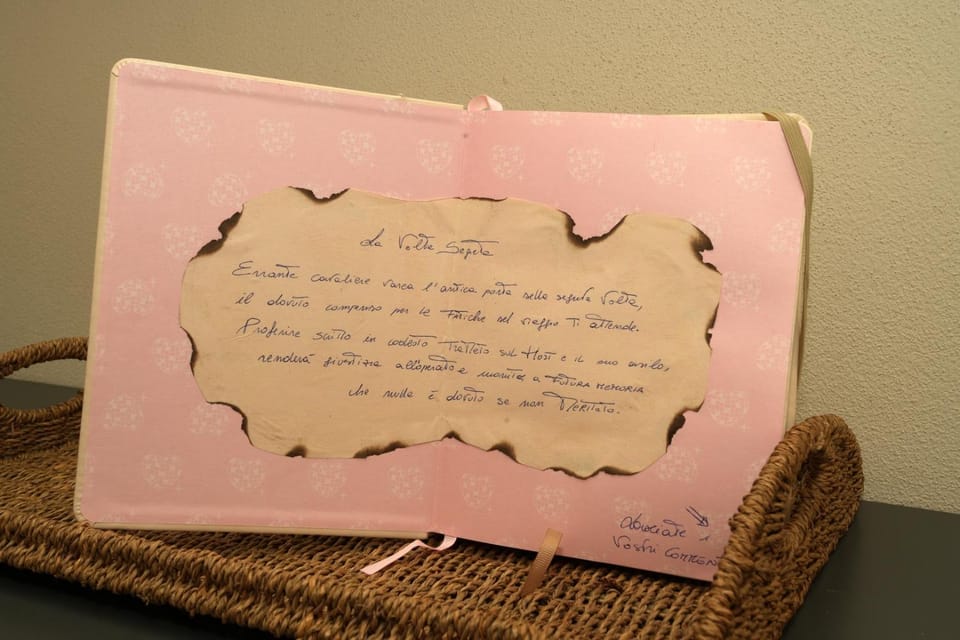 La Volta Segreta
Errante cavaliere varca l'antica porta della segreta Volta,
il dovuto compenso per le fatiche del viaggio Ti attende.
Proferire scritto in codesto Trattato sul Host e il suo asilo,
renderà giustizia all'operato e monito a FUTURA MEMORIA
che nulla è dovuto se non Meritato.
Vostri